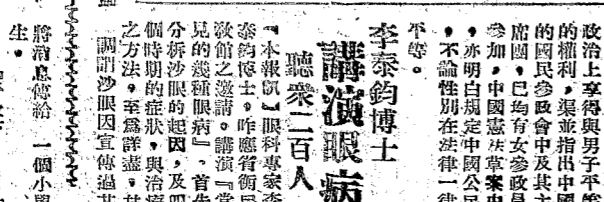 政治上享得與男子平等
的權利，渠並指出中國
的國民參政會中及其主
席團，已均有女參政員
參加，中國憲法草案中
，亦明白規定中國公民
，不論性別在法律一律
平等。
李泰鈞博士
講演眼病
聽衆二百人
【本報訊】眼科專家李
泰鈞博士，昨應省衛民
教館之邀請。講演『常
見的幾種眼病』，首先
分析沙眼的起因，及四
個時期的症狀，與治療
之方法，至爲詳盡，其
調謂沙眼因宣傳過
將消息傳給 一個小學
生。